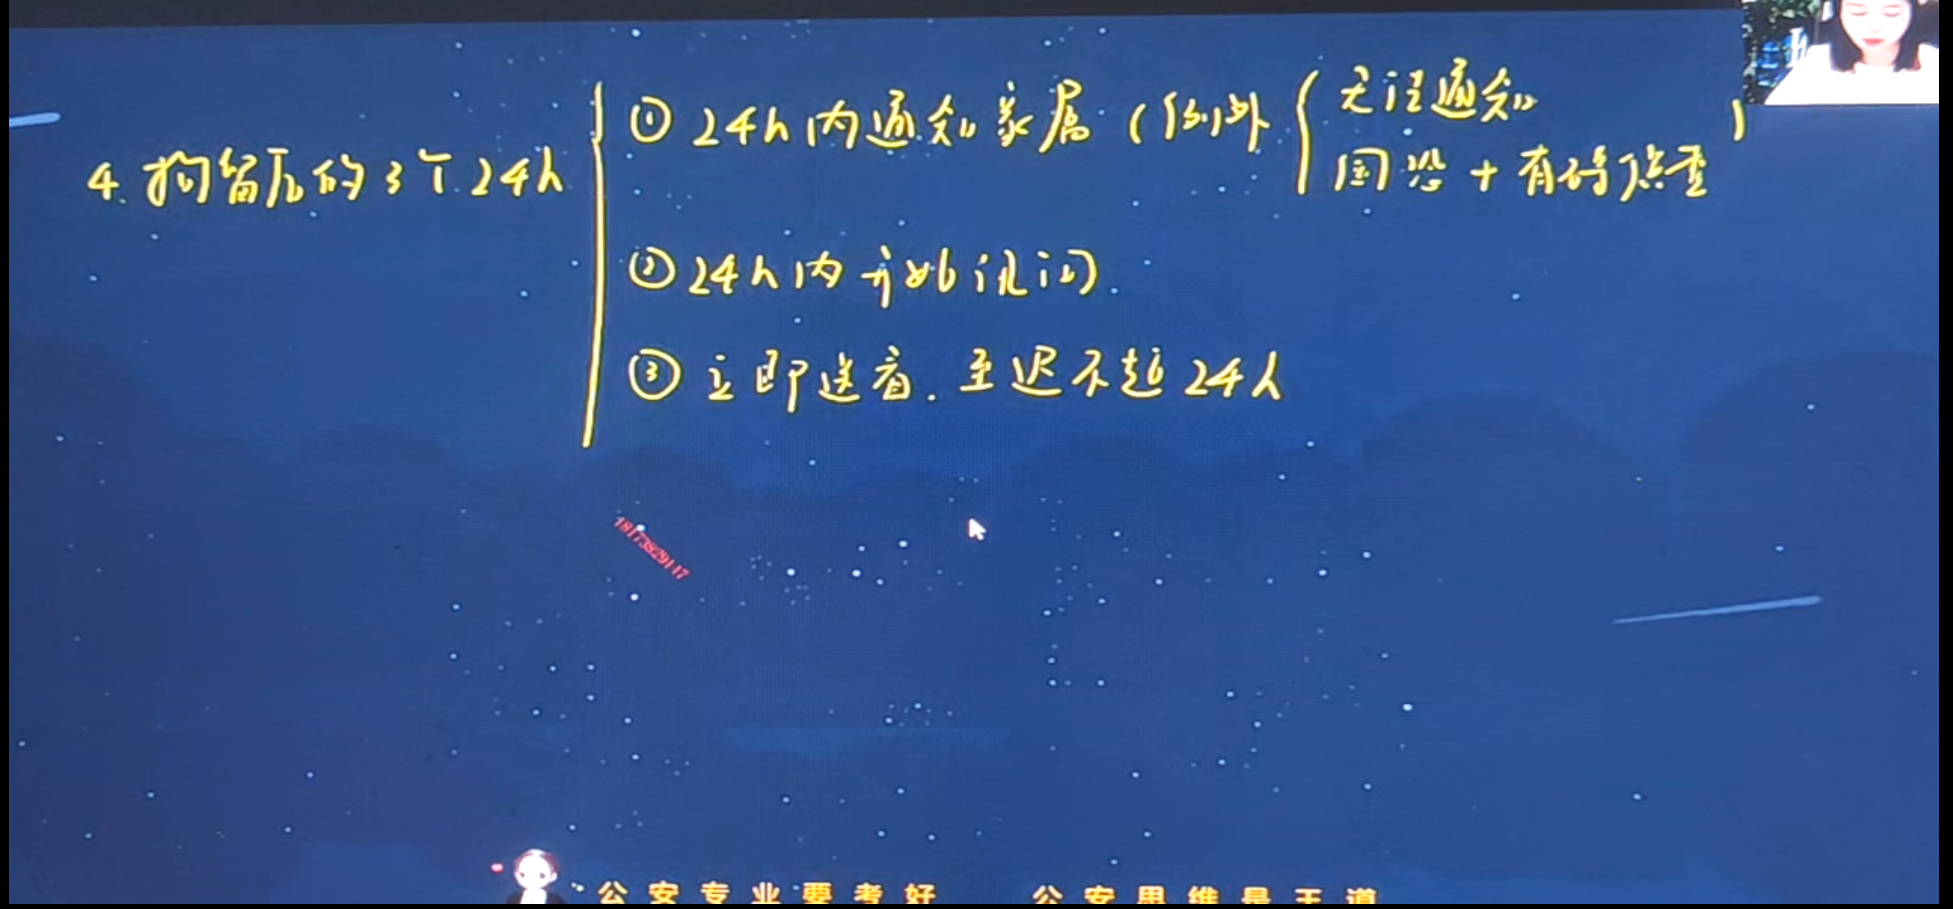 4. 拘留后的3个24h
① 24h内通知家属(例外
无法通知
国恐+有碍侦查)
② 24h内开始讯问.
③ 立即送看.至迟不超24h
18173829117
公安专业要考好 公安思维是王道